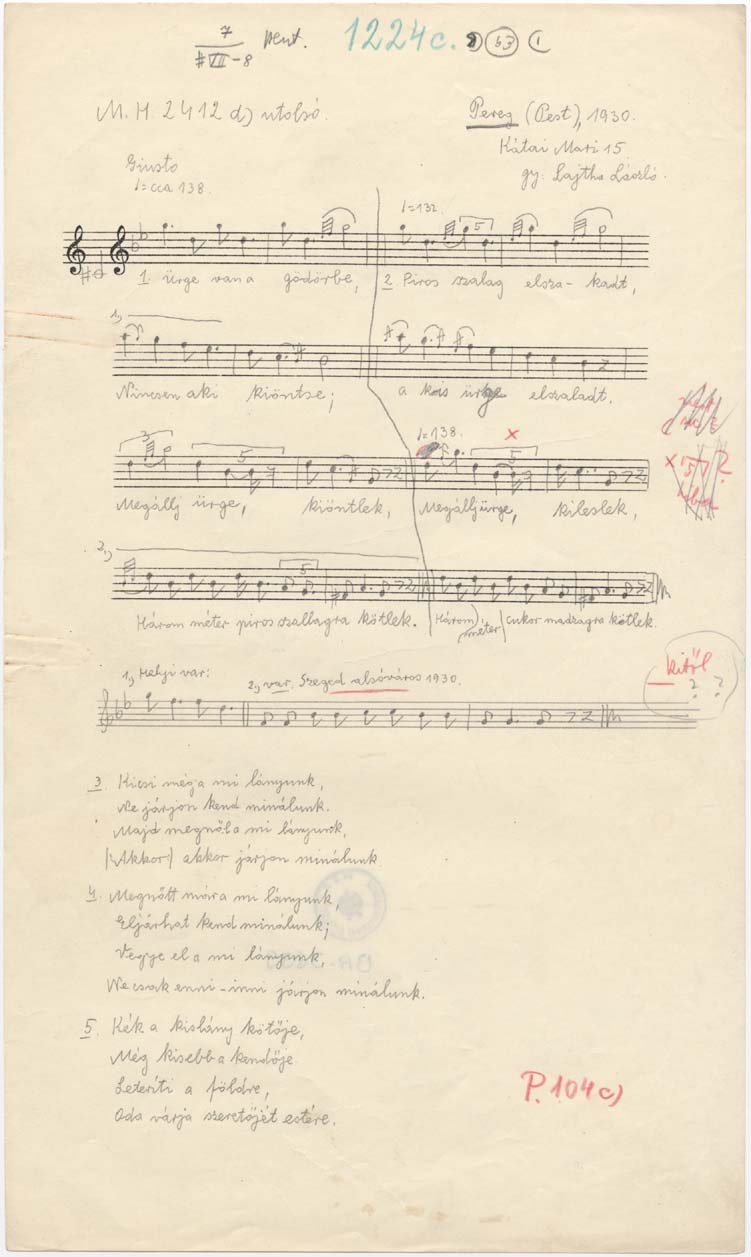 7
#VII-8 pent. 1224c. 8) 63 1
M.H. 2412 d) utolsó.
Pereg (Pest), 1930.
Kátai Mari 15
gy: Lajtha László.
Giusto
♩=cca 138.
♩=132.
5
1. Ürge van a gödörbe, 2. Piros szalag elsza-kadt,
1,)
Nincsen aki kiöntse; a kis ürge elszaladt.
3 5 ♩=138. x 5
x 15 ?
Megállj ürge, kiöntlek, Megállj ürge, kileslek,
2,) 5
Három méter piros szallagra kötlek. Három méter cukor madzagra kötlek.
1,) Helyi var: 2,) var. Szeged alsóváros 1930.
kitől
? ?
3. Kicsi még a mi lányunk,
Ne járjon kend minálunk.
Majd megnől a mi lányunk,
|:Akkor:| akkor járjon minálunk
4. Megnőtt mára mi lányunk,
Eljárhat kend minálunk;
Vegye el a mi lányunk,
Ne csak enni-inni járjon minálunk.
5. Kék a kislány kötője,
Még kisebb a kendője
Leteríti a földre,
Oda várja szeretőjét estére.
P. 104c)